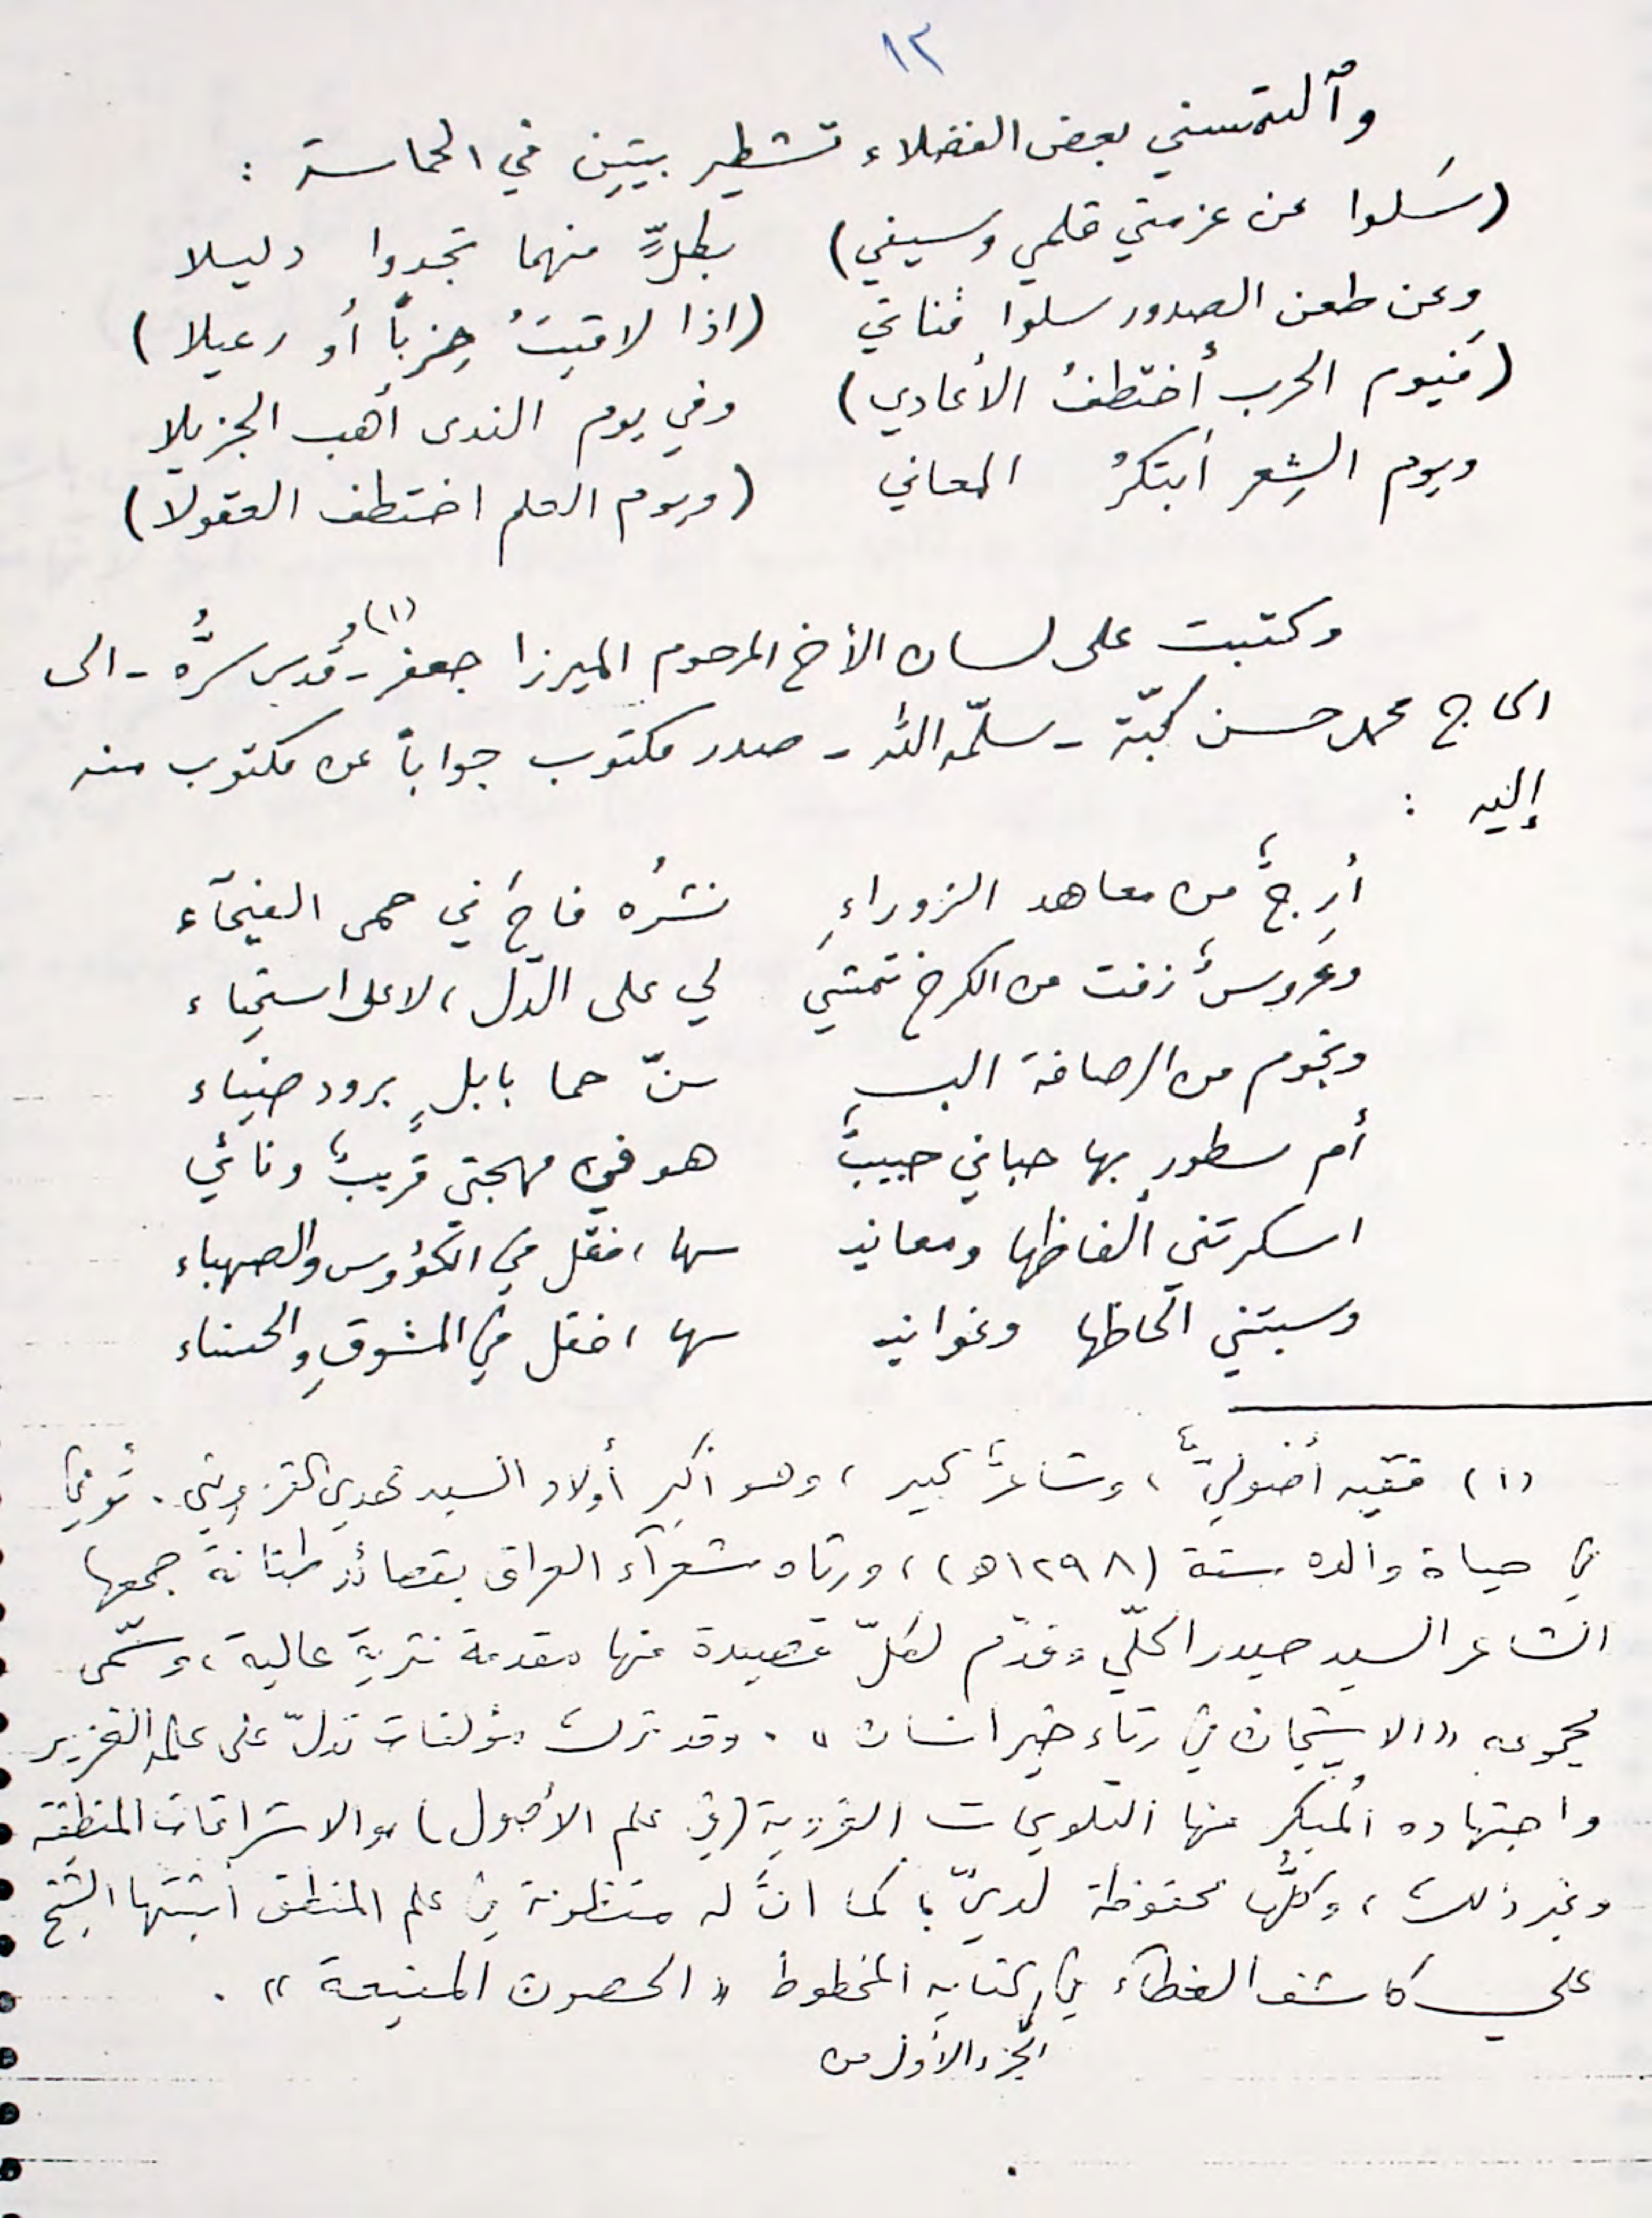 ١٣
وٱلتمسني بعض الفضلاء تشطير بيتين في الحماسة :
(سَلوا عن عزمتي قلمي وسيفي) بكلٍّ منهما تجدوا دليلا
وعن طعن الصدور سلوا قناتي (اذا لاقيتُ حِزباً أو رعيلا)
(فيوم الحرب أختطفُ الأعادي) وفي يوم الندى أهب الجزيلا
ويوم الشِعر أبتكرُ المعاني (ويوم العلم اختطف العقولا)
وكتبت على لسان الأخ المرحوم الميرزا جعفر(١) - قُدس سرُّه - الى
الحاج محمد حسن كبّة - سلّمه الله - صدر مكتوب جواباً عن مكتوب منه
إليه :
أرِجٌ من معاهد الزوراءِ نشرُه فاحَ في حمى الفيحآء
وعَروسٌ زفت من الكرخ تمشي لي على الدل، لا على استحياء
ونجوم من الرصافة البـ سنّ حما بابلٍ برود ضياء
أم سطور بها حباني حبيبٌ هو في مهجتي قريبٌ ونائي
اسكرتني ألفاظها ومعانيـ ـها، فقل في الكؤوس والصهباء
وسبتني الحاظها وغوانيـ ـها، فقل في المشوقِ والحسناء
(١) فقيه أصوليٌّ، وشاعرٌ كبير، وهو أكبر أولاد السيد مهدي القزويني. تُوفي
في حياة والده سنة (١٢٩٨هـ)، ورثاه شعرآء العراق بقصائد طنانة جمعها
الشاعر السيد حيدر الحلّي وقدّم لكلّ قصيدة منها مقدمة نثرية عالية، وسمّى
مجموعه «الاشجان في رثاء خير انسان». وقد ترك مؤلفات تدلّ على علمه الغزير
واجتهاده المبكر منها التلويحات الغروية (في علم الأصول) والاشراقات المنطقية
وغير ذلك، وكلُّها محفوظة لديّ، كما انّ له منظومة في علم المنطق أثبتها الشيخ
علي كاشف الغطآء في كتابه المخطوط «الحصون المنيعة».
الجزء الأول من